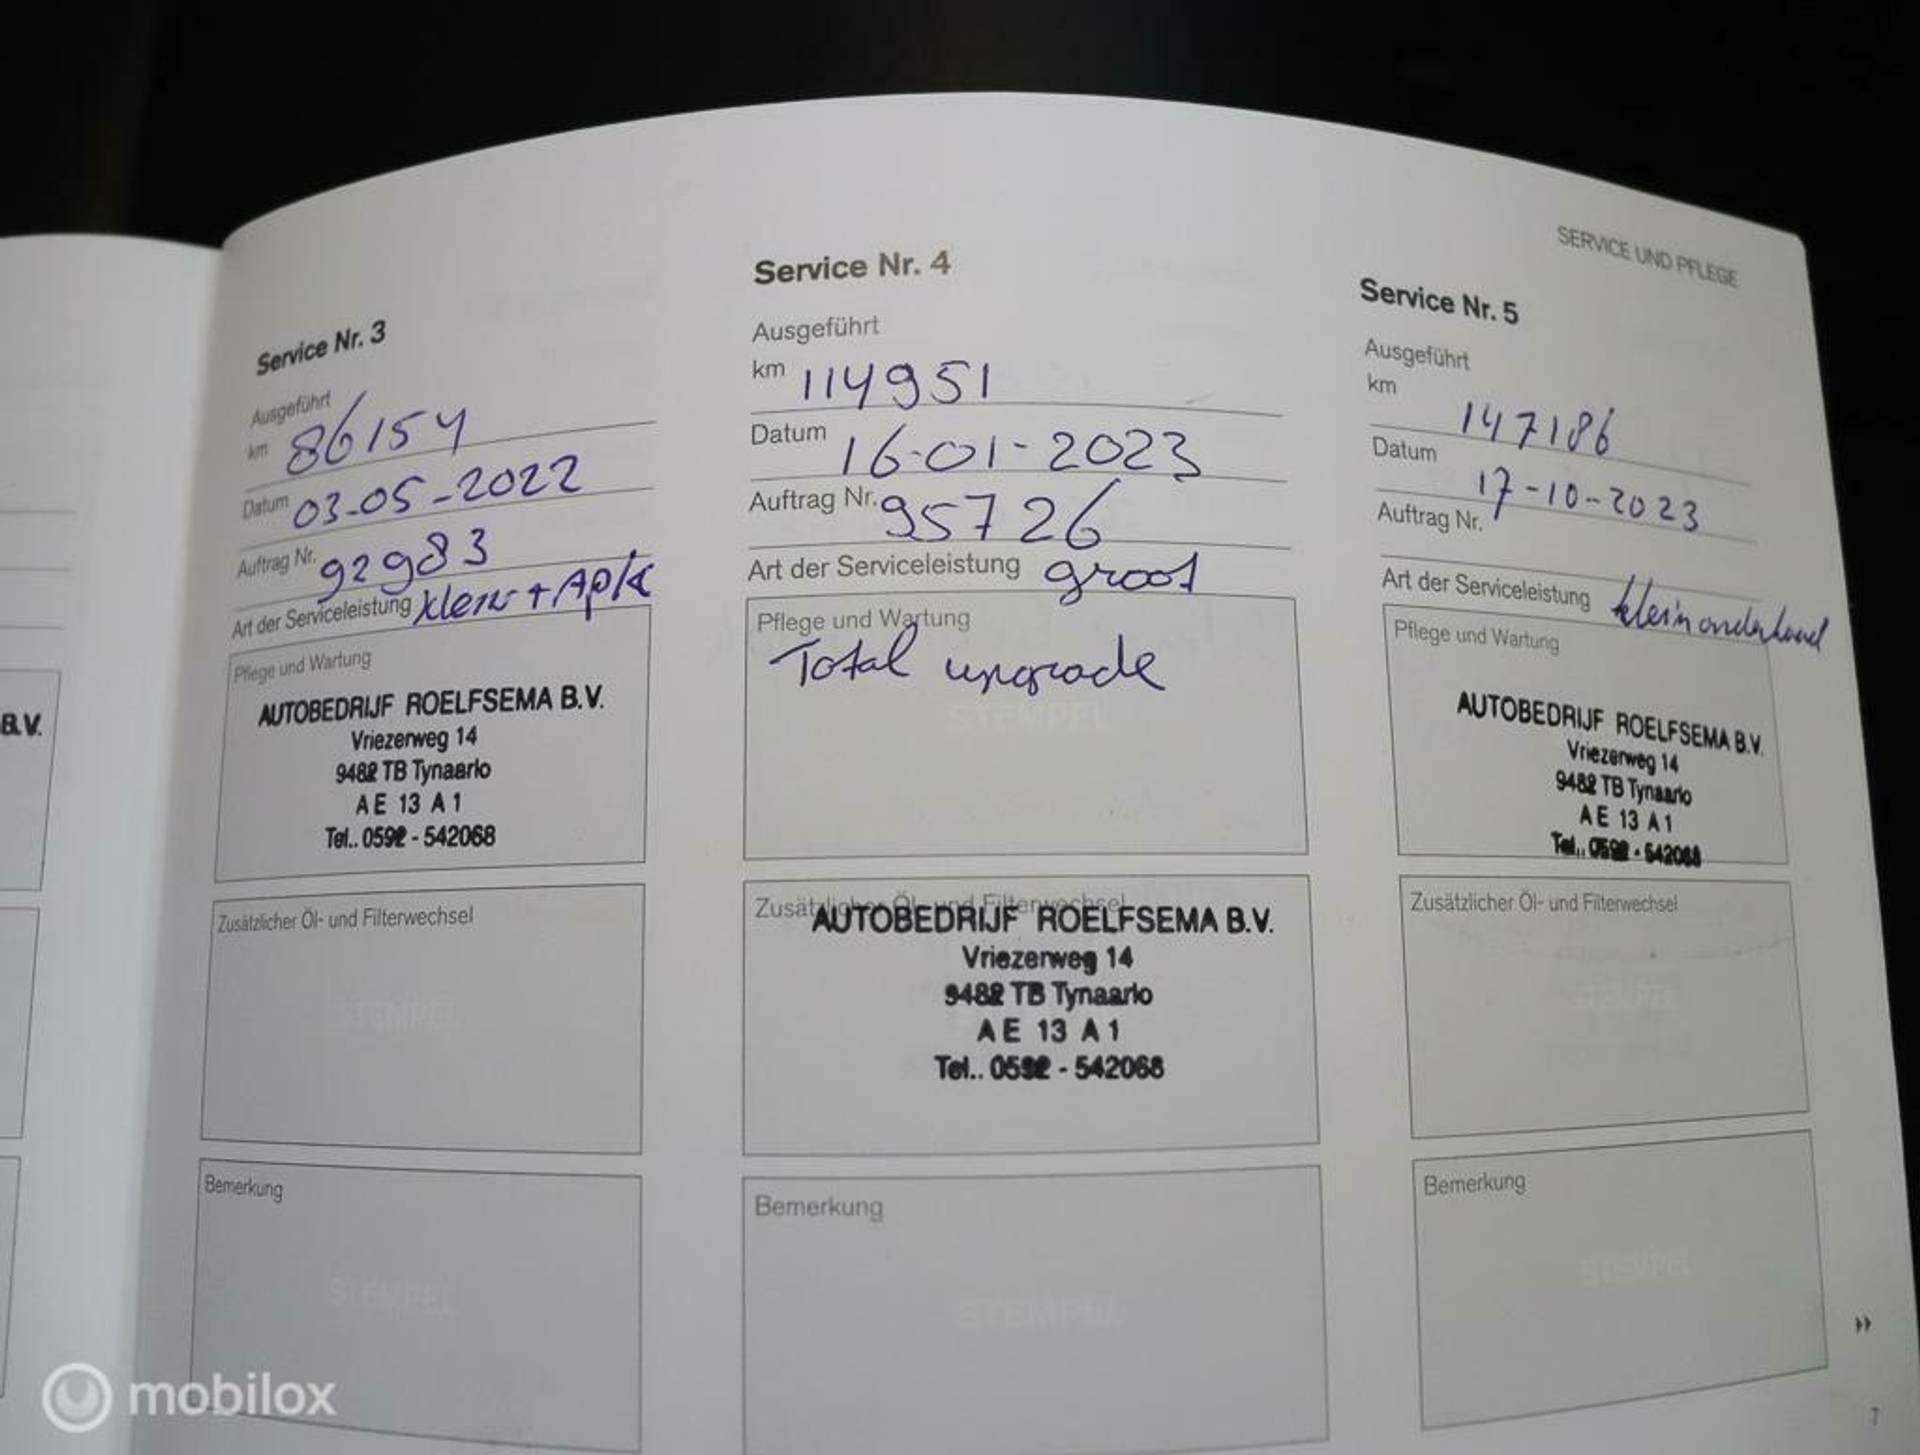 B.V.
SERVICE UND PFLEGE
Service Nr. 3
Ausgeführt
km 86154
Datum 03-05-2022
Auftrag Nr. 92983
Art der Serviceleistung klein + Apk
Pflege und Wartung
AUTOBEDRIJF ROELFSEMA B.V.
Vriezerweg 14
9482 TB Tynaarlo
AE 13 A1
Tel.. 0592 - 542068
Zusätzlicher Öl- und Filterwechsel
STEMPEL
Bemerkung
STEMPEL
Service Nr. 4
Ausgeführt
km 114951
Datum 16-01-2023
Auftrag Nr. 95726
Art der Serviceleistung groot
Pflege und Wartung
Total upgrade
STEMPEL
Zusätzlicher Öl- und Filterwechsel
AUTOBEDRIJF ROELFSEMA B.V.
Vriezerweg 14
9482 TB Tynaarlo
AE 13 A1
Tel.. 0592 - 542068
Bemerkung
STEMPEL
Service Nr. 5
Ausgeführt
km 147186
Datum 17-10-2023
Auftrag Nr.
Art der Serviceleistung klein onderhoud
Pflege und Wartung
AUTOBEDRIJF ROELFSEMA B.V.
Vriezerweg 14
9482 TB Tynaarlo
AE 13 A1
Tel.. 0592 - 542068
Zusätzlicher Öl- und Filterwechsel
STEMPEL
Bemerkung
STEMPEL
7
mobilox